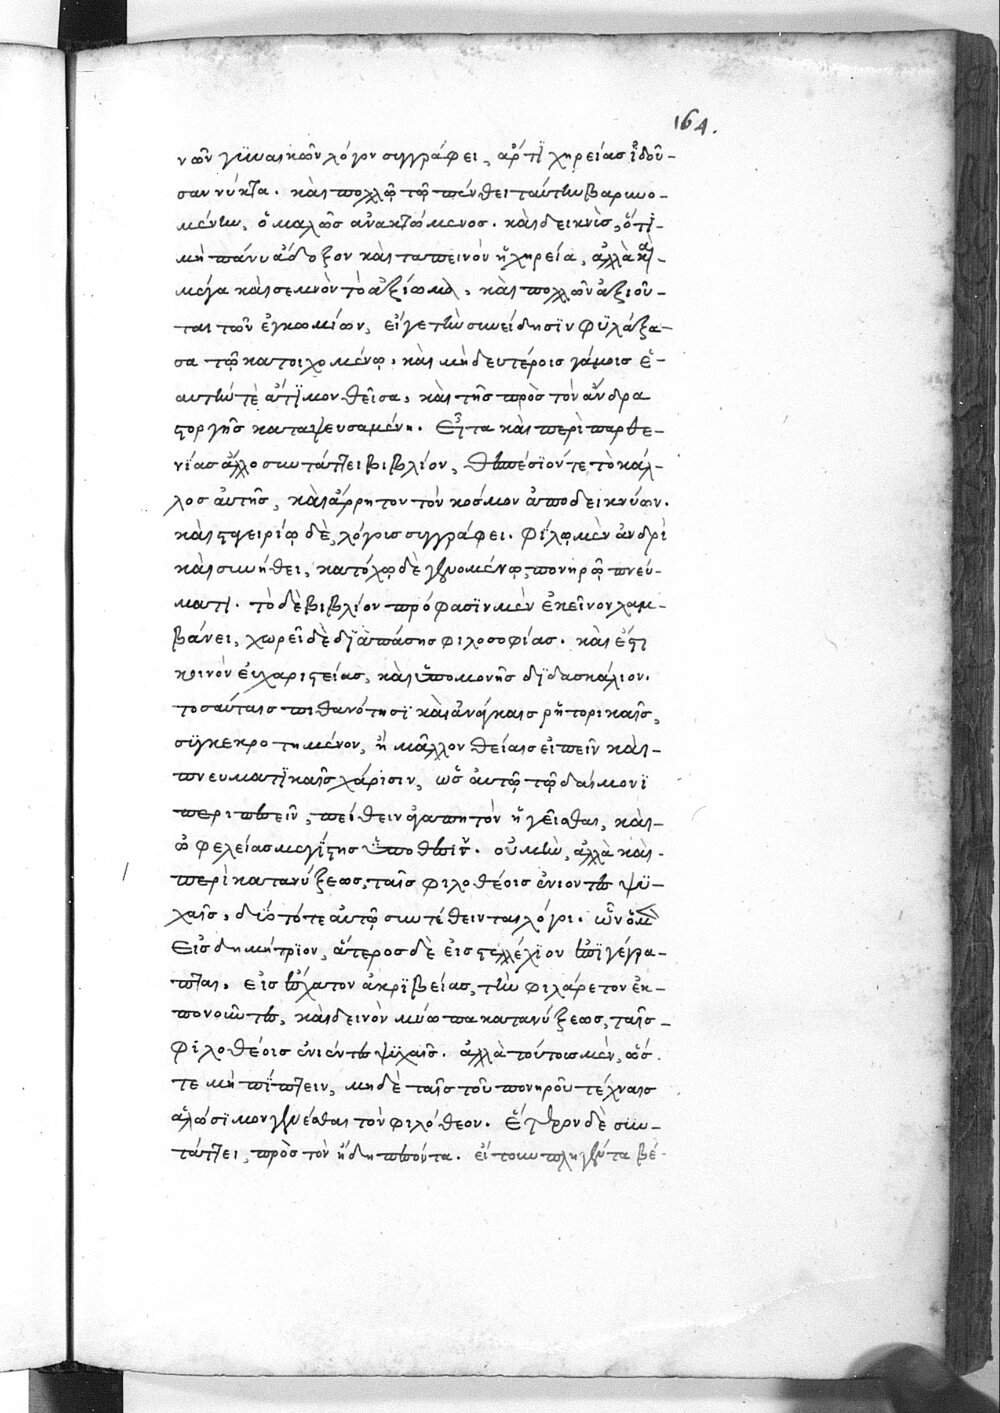 164.
νῶν γυναικῶν λόγον συγγράφει, ἄρτι χηρείας ἰδοῦ-
σαν νύκτα. καὶ πολλῷ τῷ πένθει ταύτην βαρυνο-
μένην, ὁμαλῶς ἀνακτώμενος. καὶ δεικνὺς, ὅτι-
μὴ πάνυ ἄδοξον καὶ ταπεινὸν ἡ χηρεία, ἀλλὰ καὶ-
μέγα καὶ σεμνὸν τὸ ἀξίωμα, καὶ πολλῶν ἀξιοῦ-
ται τῶν ἐγκωμίων, εἴγε τὴν συνείδησιν φυλάξα-
σα τῷ κατοιχομένῳ, καὶ μὴ δευτέροις γάμοις ἑ-
αυτήν τὲ ἀτίμον θεῖσα, καὶ τῆς πρὸς τὸν ἄνδρα
στοργῆς καταψευσαμένη. Εἶτα καὶ περὶ παρθε-
νίας ἄλλο συντάττει βιβλίον, θεσπέσιόν τε τὸ κάλ-
λος αὐτῆς, καὶ ἄρρητον τὸν κόσμον ἀποδεικνύων.
καὶ σταγειρίῳ δὲ, λόγοις συγγράφει. φίλῳ μὲν ἀνδρὶ
καὶ συνήθει, κατόχῳ δὲ γενομένῳ, πονηρῷ πνεύ-
ματι. τὸ δὲ βιβλίον πρόφασιν μὲν ἐκεῖνον λαμ-
βάνει, χωρεῖ δὲ διὰ πάσης φιλοσοφίας. καὶ ἔστι
κοινὸν εὐχαριστείας, καὶ ὑπομονῆς διδασκάλιον.
τοσαύταις πιθανότησι καὶ ἀνάγκαις ῥητορικαῖς,
συγκεκροτημένον, ἢ μᾶλλον θείαις εἰπεῖν καὶ-
πνευματικαῖς χάρισιν, ὡς αὐτῷ τῷ δαίμονι
περιπεσεῖν, πείθειν ἀγαπητὸν ἡγεῖσθαι, καὶ-
ὠφελείας μεγίστης ὑπόθεσιν. οὐ μὴν, ἀλλὰ καὶ-
περὶ κατανύξεως, ταῖς φιλοθέοις ἐνιόντες ψυ-
χαῖς, δύο τότε αὐτῷ συντέθεινται λόγοι. ὧν ὁ μὲν
Εἰς δημήτριον, ἅτερος δὲ εἰς στελλέχιον ἐπιγέγρα-
πται. εἰς ἔσχατον ἀκριβείας, τὴν φιλάρετον ἐκ-
πονοῦντες, καὶ δεινὸν μύωπα κατανύξεως, ταῖς-
φιλοθέοις ἐνιέντες ψυχαῖς. ἀλλὰ τούτοις μὲν, ὥς-
τε μὴ πίπτειν, μηδὲ ταῖς τοῦ πονηροῦ τέχναις
ἁλώσιμον γενέσθαι τὸν φιλόθεον. Ἕτερον δὲ συν-
τάττει, πρὸς τὸν ἤδη πεσόντα. εἴτουν πληγέντα βέ-